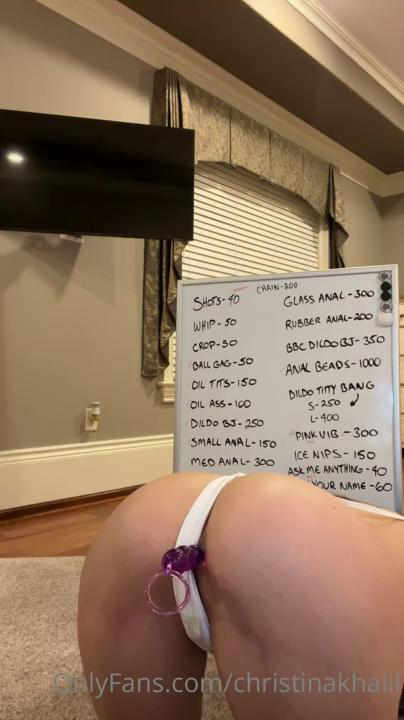 CHAIN-200
SHOTS-40
WHIP-50
CROP-50
BALL GAG-50
OIL TITS-150
OIL ASS-100
DILDO BJ-250
SMALL ANAL-150
MED ANAL-300
GLASS ANAL-300
RUBBER ANAL-200
BBC DILDO BJ-350
ANAL BEADS-1000
DILDO TITY BANG
S-250
L-400
PINK VIB.-300
ICE NIPS-150
ASK ME ANYTHING-40
YOUR NAME-60
OnlyFans.com/christinakhalil